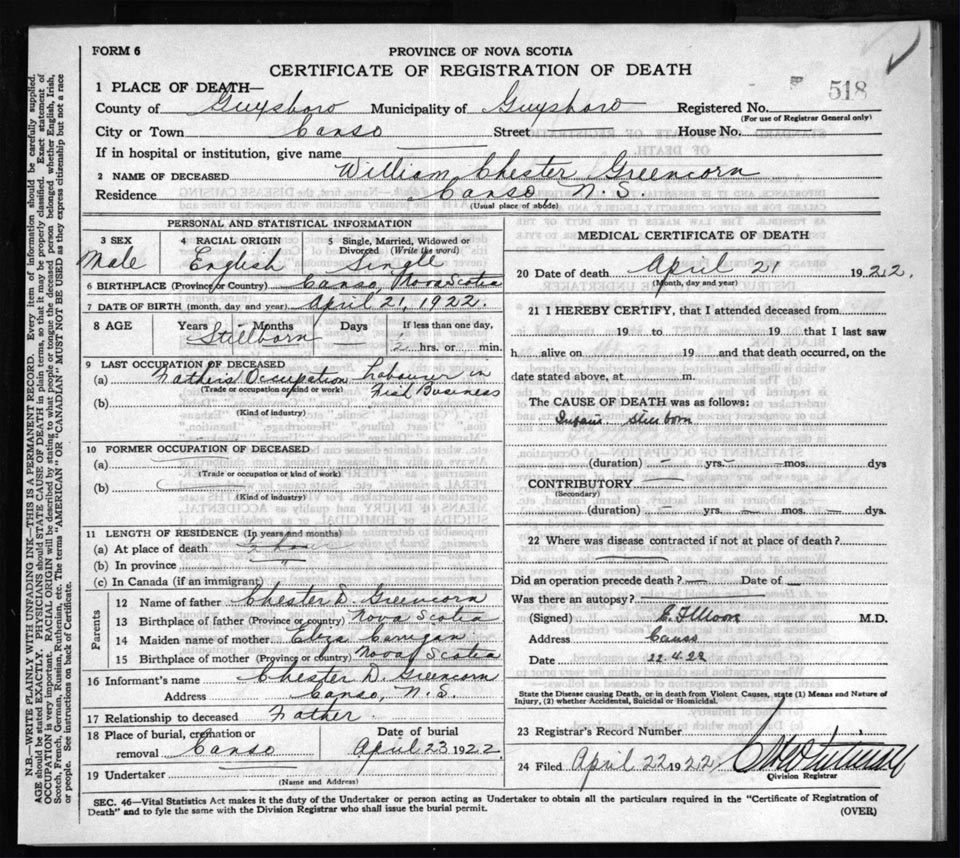 FORM 6
PROVINCE OF NOVA SCOTIA
CERTIFICATE OF REGISTRATION OF DEATH
518
1 PLACE OF DEATH—
County of Guysboro Municipality of Guysboro Registered No.
(For use of Registrar General only)
City or Town Canso Street House No.
If in hospital or institution, give name
2 NAME OF DECEASED William Chester Greencorn
Residence Canso N.S.
(Usual place of abode)
PERSONAL AND STATISTICAL INFORMATION
3 SEX 4 RACIAL ORIGIN 5 Single, Married, Widowed or Divorced (Write the word)
Male English Single
6 BIRTHPLACE (Province or Country) Canso, Nova Scotia
7 DATE OF BIRTH (month, day and year) April 21, 1922.
8 AGE Years Months Days If less than one day,
Stillborn — ½ hrs. or min.
9 LAST OCCUPATION OF DECEASED
(a) Father's Occupation Labourer in
(Trade or occupation or kind of work)
(b) Fish Business
(Kind of industry)
10 FORMER OCCUPATION OF DECEASED
(a)
(Trade or occupation or kind of work)
(b)
(Kind of industry)
11 LENGTH OF RESIDENCE (In years and months)
(a) At place of death ½ hour
(b) In province "
(c) In Canada (if an immigrant)
Parents
12 Name of father Chester D. Greencorn
13 Birthplace of father (Province or country) Nova Scotia
14 Maiden name of mother Eliza Carrigan
15 Birthplace of mother (Province or country) Nova Scotia
16 Informant's name Chester D. Greencorn
Address Canso, N.S.
17 Relationship to deceased Father.
18 Place of burial, cremation or removal Canso Date of burial April 23 1922
19 Undertaker
(Name and Address)
MEDICAL CERTIFICATE OF DEATH
20 Date of death April 21 1922.
(Month, day and year)
21 I HEREBY CERTIFY, that I attended deceased from
19 to 19 that I last saw
h alive on 19 and that death occurred, on the
date stated above, at m.
The CAUSE OF DEATH was as follows:
Infant Stillborn
(duration) — yrs. — mos. dys
CONTRIBUTORY
(Secondary)
(duration) — yrs. — mos. — dys.
22 Where was disease contracted if not at place of death?
Did an operation precede death? — Date of —
Was there an autopsy?
(Signed) Moore M.D.
Address Canso
Date 22.4.22
State the Disease causing Death, or in death from Violent Causes, state (1) Means and Nature of Injury, (2) whether Accidental, Suicidal or Homicidal.
23 Registrar's Record Number
24 Filed April 22 1922
Division Registrar
SEC. 46—Vital Statistics Act makes it the duty of the Undertaker or person acting as Undertaker to obtain all the particulars required in the "Certificate of Registration of
Death" and to fyle the same with the Division Registrar who shall issue the burial permit.
(OVER)
N.B.—WRITE PLAINLY WITH UNFADING INK—THIS IS A PERMANENT RECORD. Every item of information should be carefully supplied.
AGE should be stated EXACTLY. PHYSICIANS should STATE CAUSE OF DEATH in plain terms, so that it may be properly classified. Exact statement of
OCCUPATION is very important. RACIAL ORIGIN will be described by stating to what people or tongue the deceased person belonged whether English, Irish,
Scotch, French, German, Russian, Ruthenian, etc. The terms "AMERICAN" OR "CANADIAN" MUST NOT BE USED as they express citizenship but not a race
or people. See instructions on back of Certificate.